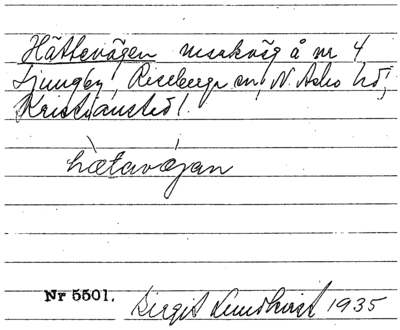 Hättevägen markväg å nr 4
Ljungby, Riseberga sn, N. Åsbo hd,
Kristianstad l.
hæ̀tavǽgan
Nr 5501.
Birgit Lundkvist 1935